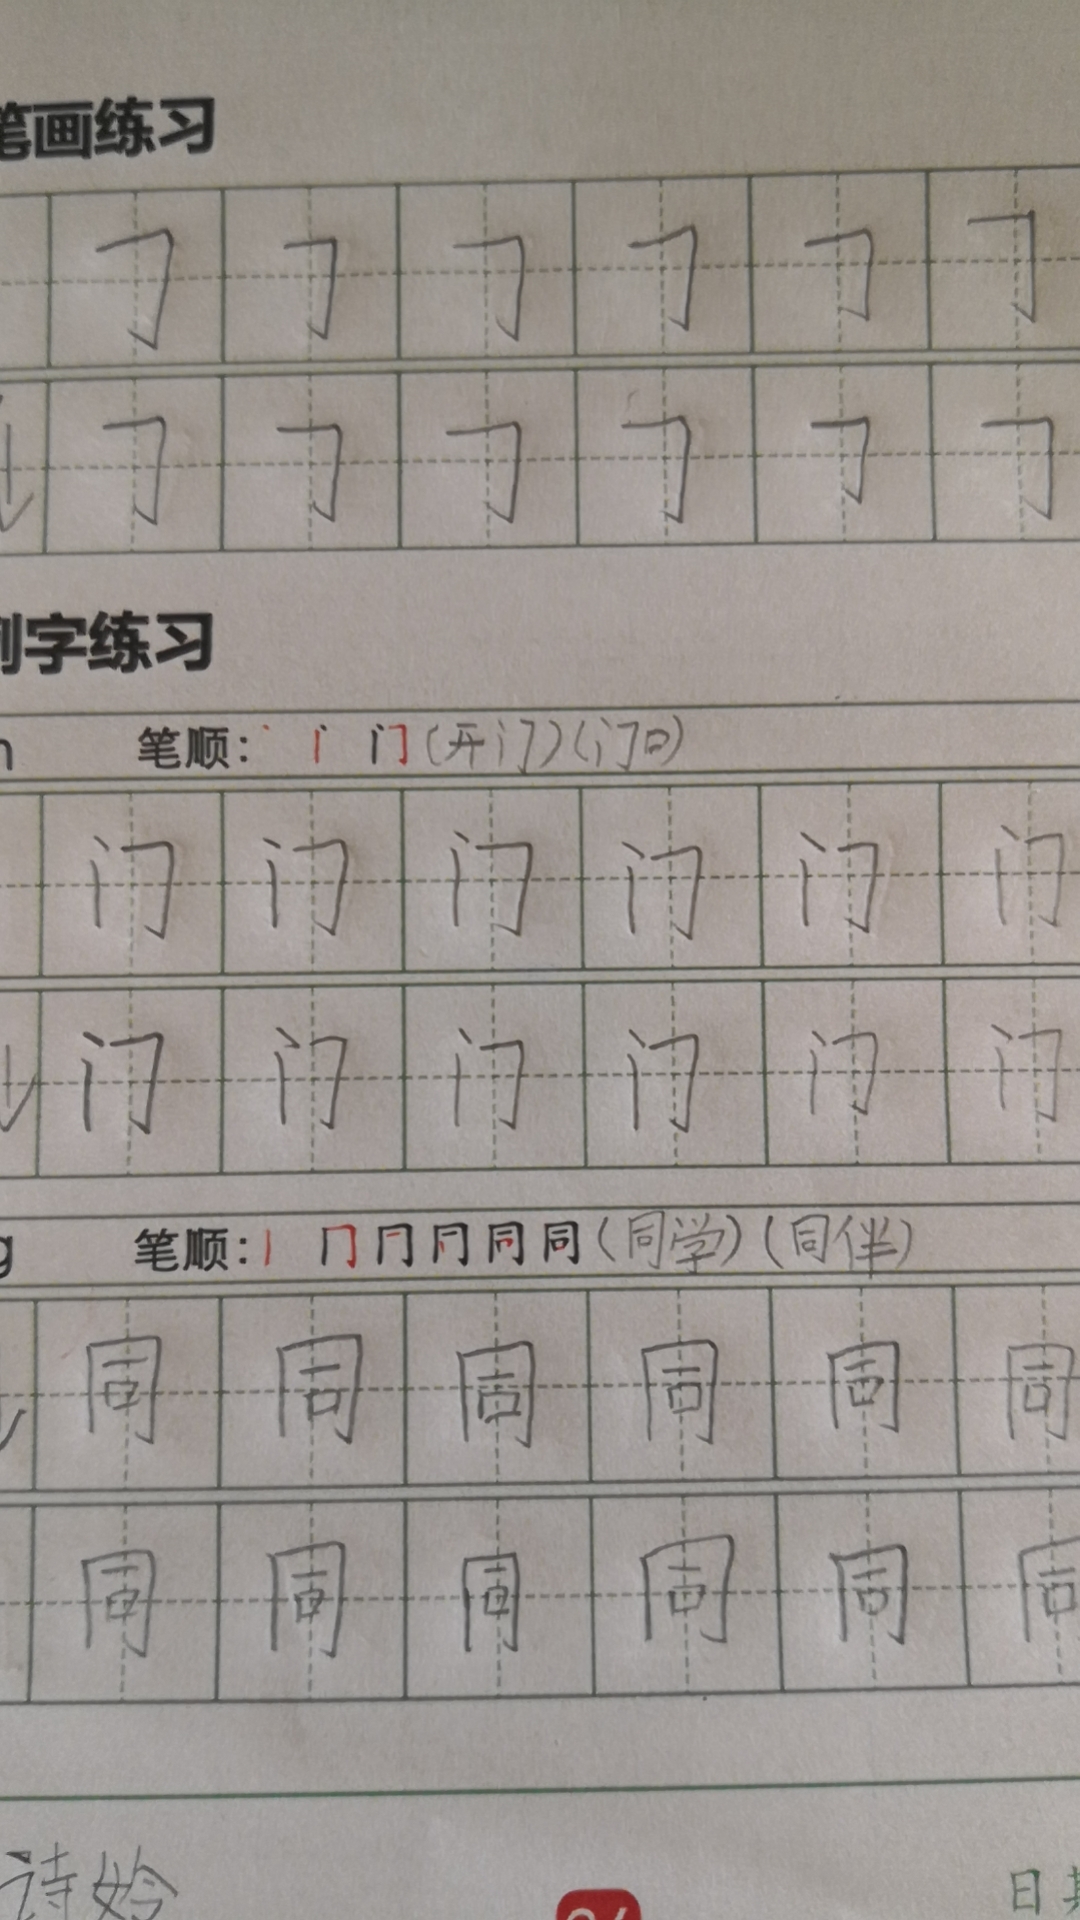 笔画练习
𠃌 𠃌 𠃌 𠃌 𠃌 𠃌
𠃌 𠃌 𠃌 𠃌 𠃌 𠃌
例字练习
n 笔顺：丶 丨 门(开门)(门口)
门 门 门 门 门 门
门 门 门 门 门 门
g 笔顺：丨 冂 同(同学)(同伴)
同 同 同 同 同 同
同 同 同 同 同 同
诗
日期